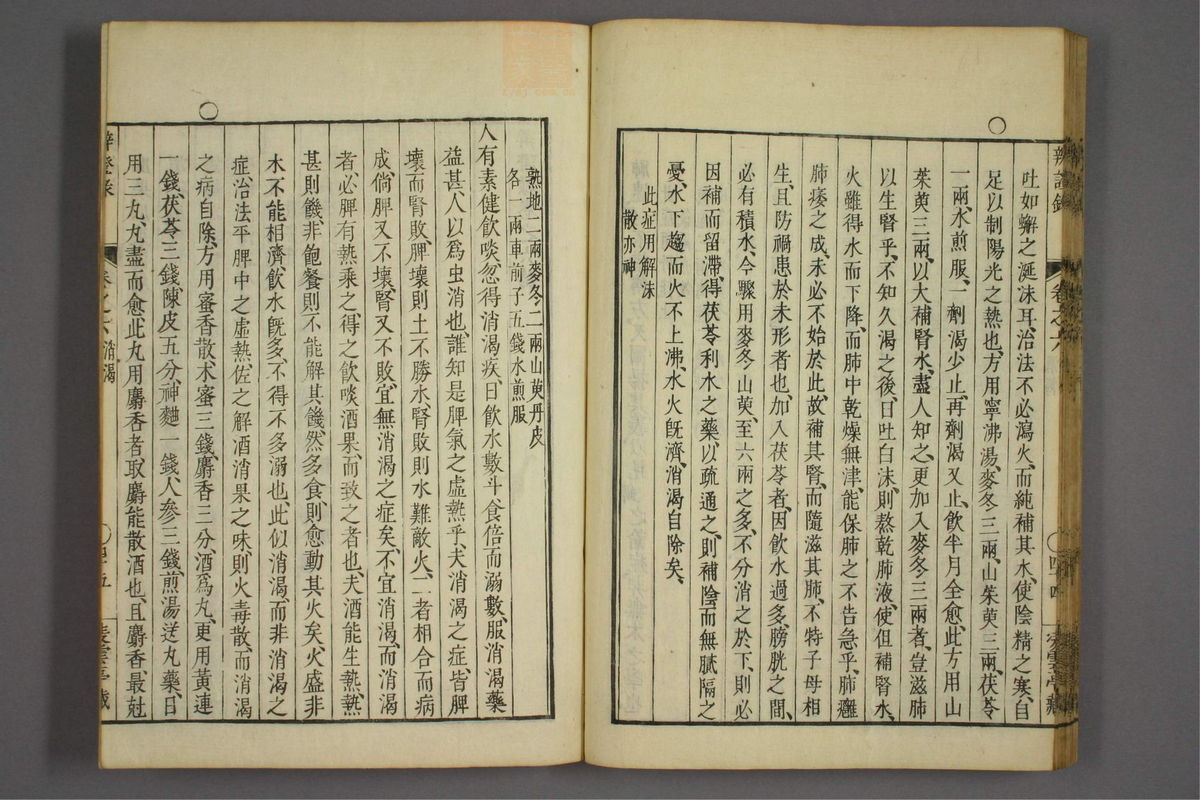 辨證錄 卷之六 四十四
吐如蠏之涎沫耳、治法不必瀉火、而純補其水、使陰精之寒、自
足以制陽光之熱也、方用寧沸湯、麥冬三兩、山茱萸三兩、茯苓
一兩、水煎服、一劑渴少止、再劑渴又止、飲半月全愈、此方用山
茱萸三兩、以大補腎水、盡人知之、更加入麥冬三兩者、豈滋肺
以生腎乎、不知久渴之後、日吐白沫、則熬乾肺液、使但補腎水、
火雖得水而下降、而肺中乾燥無津、能保肺之不告急乎、肺癰
肺痿之成、未必不始於此、故補其腎、而隨滋其肺、不特子母相
生、且防禍患於未形者也、加入茯苓者、因飲水過多、膀胱之間、
必有積水、今驟用麥冬山萸、至六兩之多、不分消之於下、則必
因補而留滯、得茯苓利水之藥、以疏通之、則補陰而無膩隔之
憂、水下趨而火不上沸、水火旣濟、消渴自除矣、
此症用解沫
散亦神
熟地二兩麥冬二兩山萸丹皮
各一兩車前子五錢水煎服
人有素健飲啖、忽得消渴疾、日飲水數斗、食倍而溺數、服消渴藥
益甚、人以爲虫消也、誰知是脾氣之虛熱乎、夫消渴之症、皆脾
壞而腎敗、脾壞則土不勝水、腎敗則水難敵火、二者相合而病
成、倘脾又不壞、腎又不敗、宜無消渴之症矣、不宜消渴、而消渴
者、必脾有熱乘之、得之飲啖酒果、而致之者也、夫酒能生熱、熱
甚則饑、非飽餐則不能解其饑、然多食、則愈動其火矣、火盛非
水不能相濟、飲水旣多、不得不多溺也、此似消渴、而非消渴之
症、治法平脾中之虛熱、佐之解酒消果之味、則火毒散、而消渴
之病自除、方用蜜香散、木蜜三錢、麝香三分、酒爲丸、更用黃連
一錢、茯苓三錢、陳皮五分、神麯一錢、人參三錢、煎湯送丸藥、日
用三丸、丸盡而愈、此丸用麝香者、取麝能散酒也、且麝香最尅
卷之六 消渴 四十五